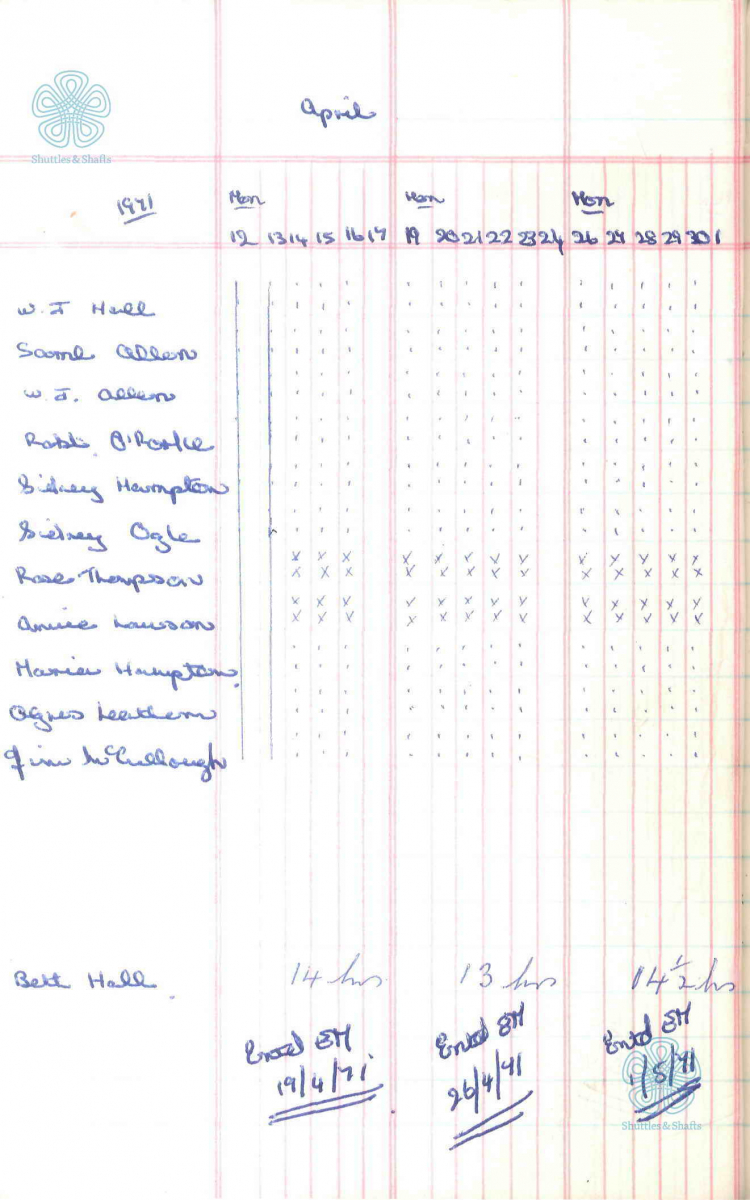 April
Shuttles & Shafts
1971 Mon Mon Mon
12 13 14 15 16 17 19 20 21 22 23 24 26 27 28 29 30 1
W. J Hall
Saml Allen
W. J. Allen
Robt. O'Rorke
Sidney Hampton
Sidney Ogle
X X X X X X X X X X X X X
Rose Thompson X X X X X X X X X X X X X
X X X X X X X X X X X X X
Annie Lawson X X X X X X X X X X X X X
Maria Hampton.
Agnes Leathem
Jim McCullough
Beth Hall. 14 hrs 13 hrs 14 1/2 hrs
Entd EH Entd EH Entd EH
19/4/71. 26/4/71 1/5/71
Shuttles & Shafts